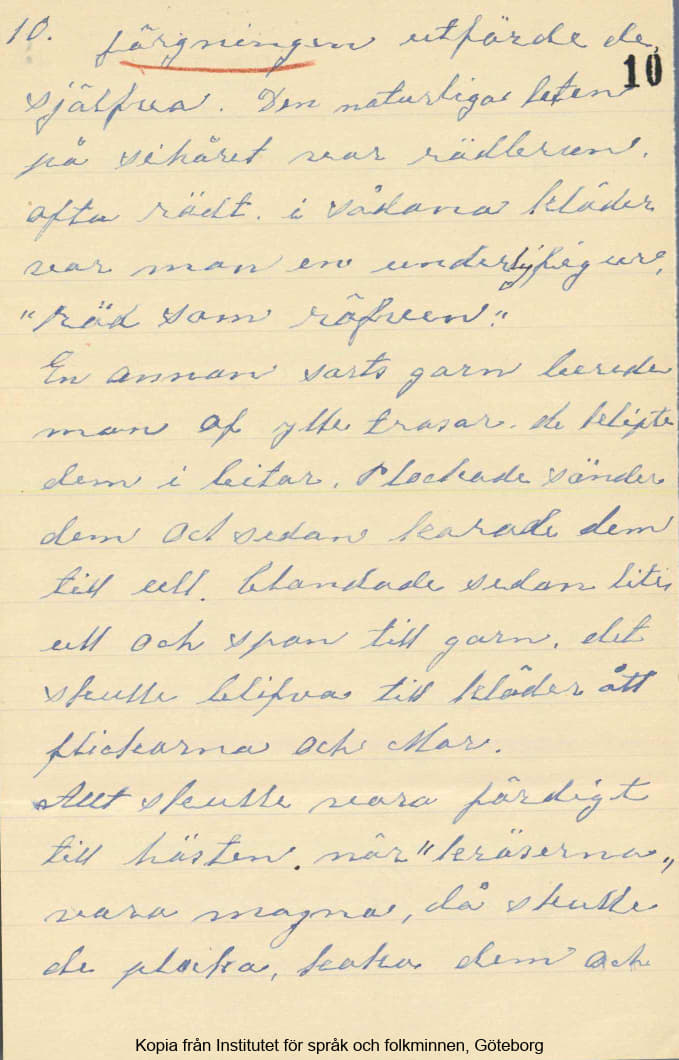 10. färgningen utförde de
10
själfva. Den naturliga leten
på sihåret var rödbrun.
ofta rödt. i sådana kläder
var man en underlig figur,
"Röd som räfven".
En annan sorts garn berede
man af ylle trasar. de klipte
dem i bitar. Plockade sönder
dem och sedan karade dem
till ull. blandade sedan lite
ull och span till garn. det
skulle blifva till kläder ått
flickorna och Mor.
Allt skulle vara färdigt
till hösten. när "kräserna"
vara mogna, då skulle
de plocka, koka dem och
Kopia från Institutet för språk och folkminnen, Göteborg